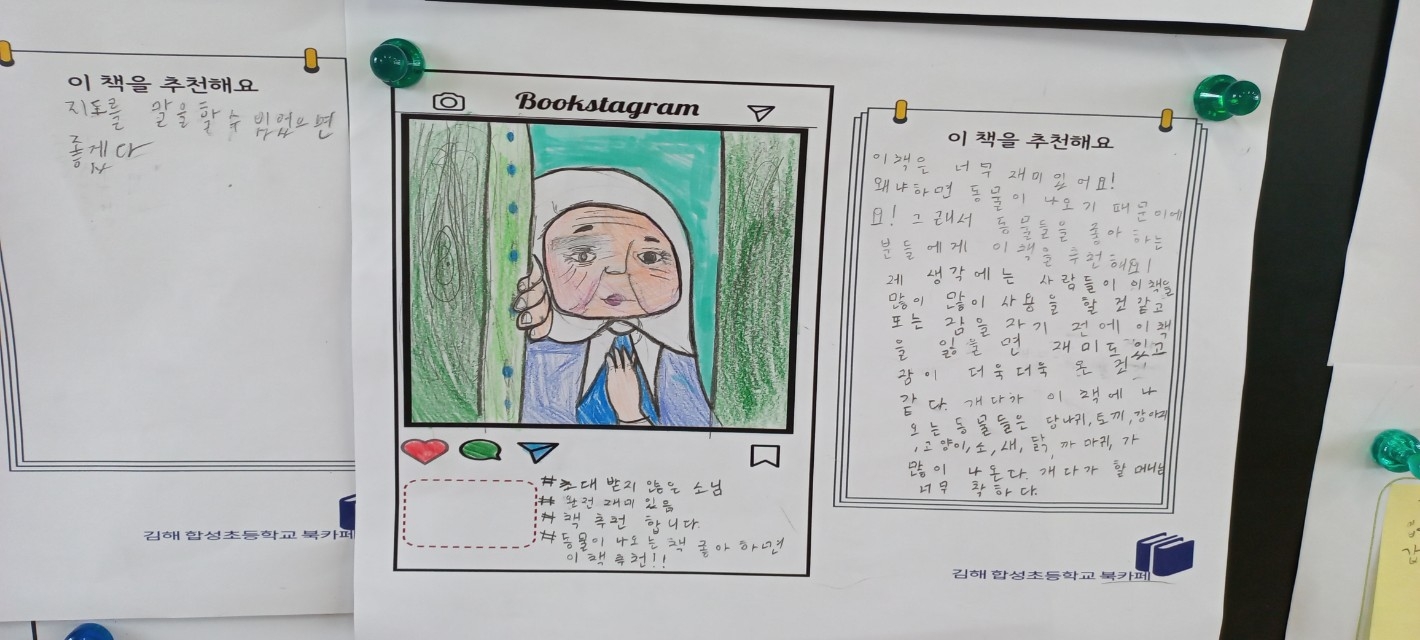 이 책을 추천해요
지도를 말을 할 수 있었으면
좋겠다
김해 합성초등학교 북카페
Bookstagram
#초대 받지 않은 소님
#완전 재미 있음
#책 추천 합니다.
#동물이 나오는 책 좋아 하면
이 책 추천!!
이 책을 추천해요
이 책은 너무 재미 있어요!
왜냐하면 동물이 나오기 때문이에
요! 그래서 동물들을 좋아 하는
분들에게 이 책을 추천해요!
제 생각에는 사람들이 이 책을
많이 많이 사용을 할 것 같고
또는 잠을 자기 전에 이 책
을 읽을 면 재미도 있고
잠이 더욱더욱 온 것
같다. 개다가 이 책에 나
오는 동물들은 당나귀, 토끼, 강아지
, 고양이, 소, 새, 닭, 까마귀, 가
많이 나온다. 개다가 할머니는
너무 착하다.
김해 합성초등학교 북카페